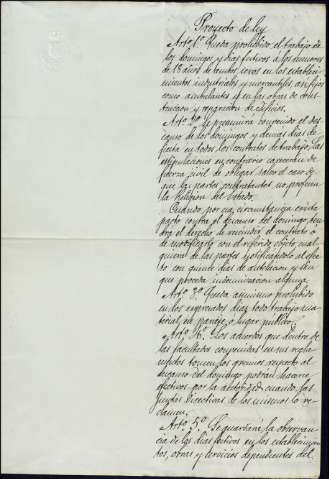 Proyecto de ley
Artº 1º Queda prohibido el trabajo de
los domingos y dias festivos a los menores
de 18 años de ambos sexos en los estableci-
mientos industriales y mercantiles, así fijos
como ambulantes y en las obras de cons-
truccion y reparacion de edificios.
Artº 2º Se presumirá convenido el des-
canso de los domingos y demas dias de
fiesta en todos los contratos de trabajo, las
estipulaciones en contrario carecerán de
fuerza civil de obligar salvo el caso de
que las partes contratantes no profesen
la Religion del Estado.
Cuando por una circunstancia exista
pacto contra el descanso del domingo, ten-
drá el derecho de rescindir el contrato ó
de modificarlo con el referido objeto cual-
quiera de las partes notificándolo al efec-
to con quince dias de antelacion y sin
que proceda indemnizacion alguna.
Artº 3º Queda asimismo prohibido
en los expresados dias todo trabajo ma-
terial, en paraje ó lugar publico.
Artº 4º Los acuerdos que dentro de
las facultades consignadas en sus regla-
mentos tomen los gremios respecto al
descanso del domingo podrán hacerse
efectivos por la autoridad cuando las
Juntas Directivas de los mismos lo re-
clamen.
Artº 5º Se guardará la observan-
cia de los dias festivos en los establecimien-
tos, obras y servicios dependientes del